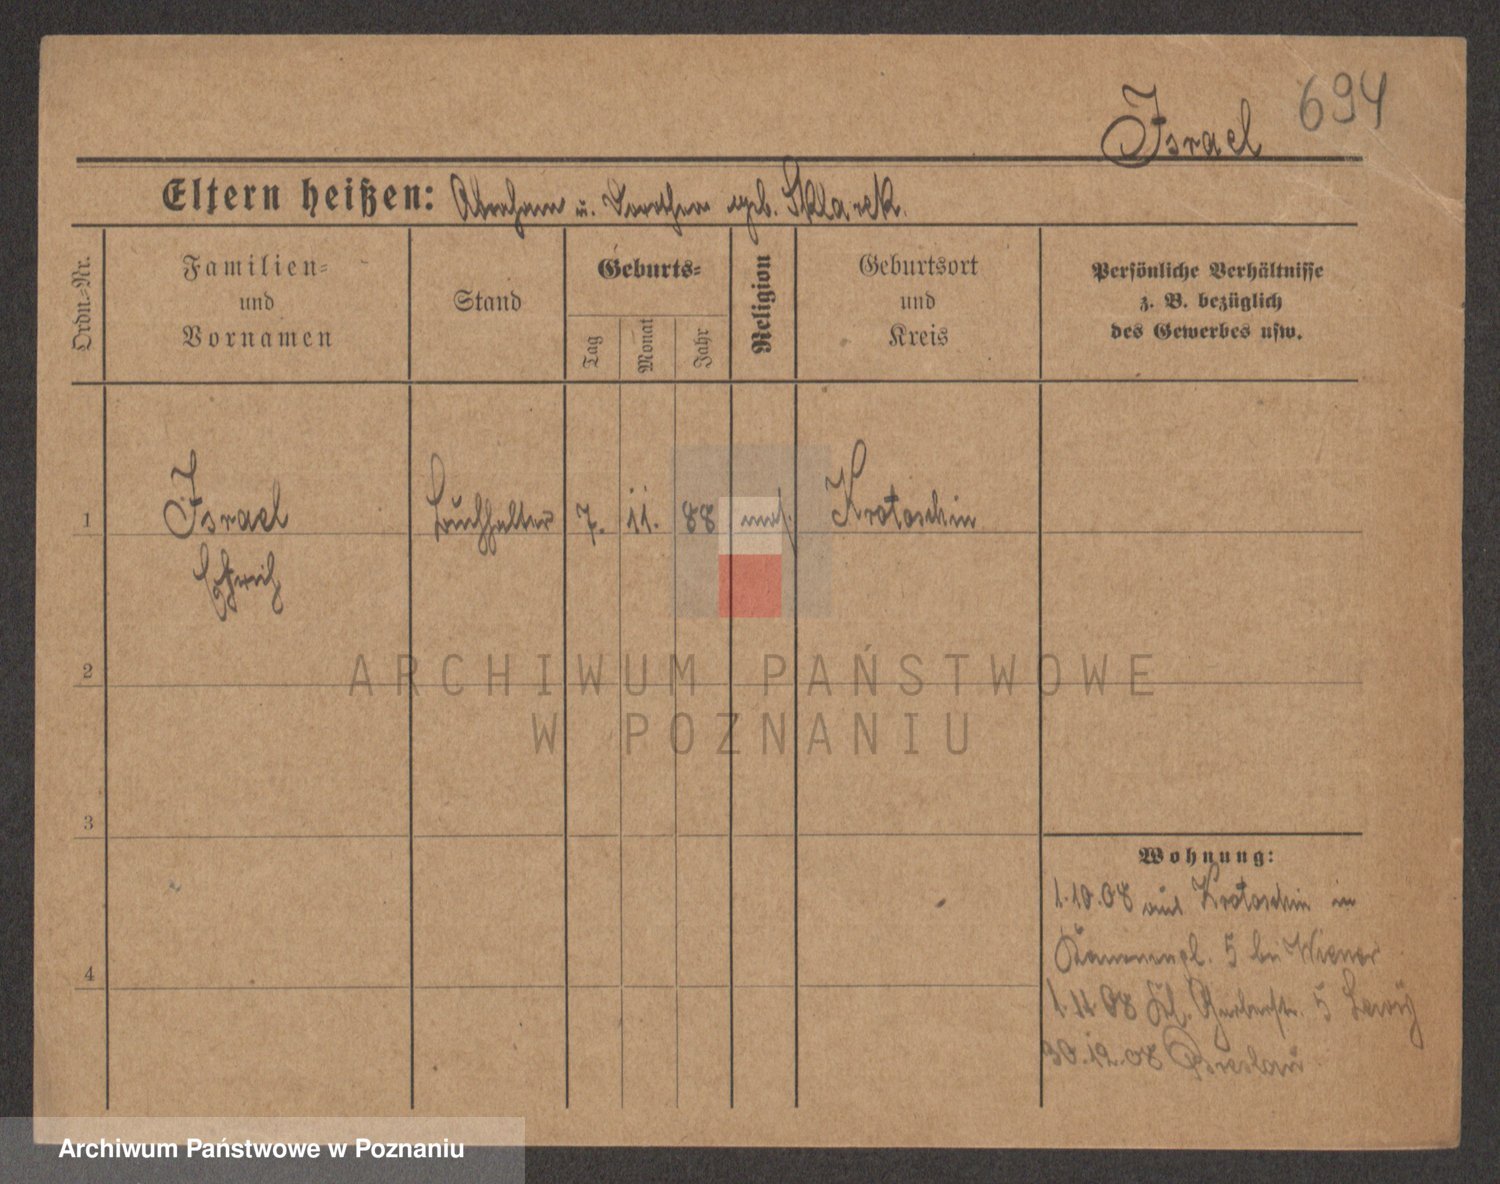 694
Israel
Eltern heißen: Abraham u. Dorothea geb. Sklarek.
Ordn.-Nr.
Familien- und Vornamen
Stand
Geburts-
Tag
Monat
Jahr
Religion
Geburtsort und Kreis
Persönliche Verhältnisse
z. B. bezüglich
des Gewerbes usw.
1 Israel Buchhalter 7. 11. 88 mos. Krotoschin
2
ARCHIWUM PAŃSTWOWE
W POZNANIU
3
Wohnung:
1.10.08 aus Krotoschin in
5 bei Wiener
4
1.11.08 Kl. Gerberstr. 5 Lewy
30.12.08 Breslau
Archiwum Państwowe w Poznaniu